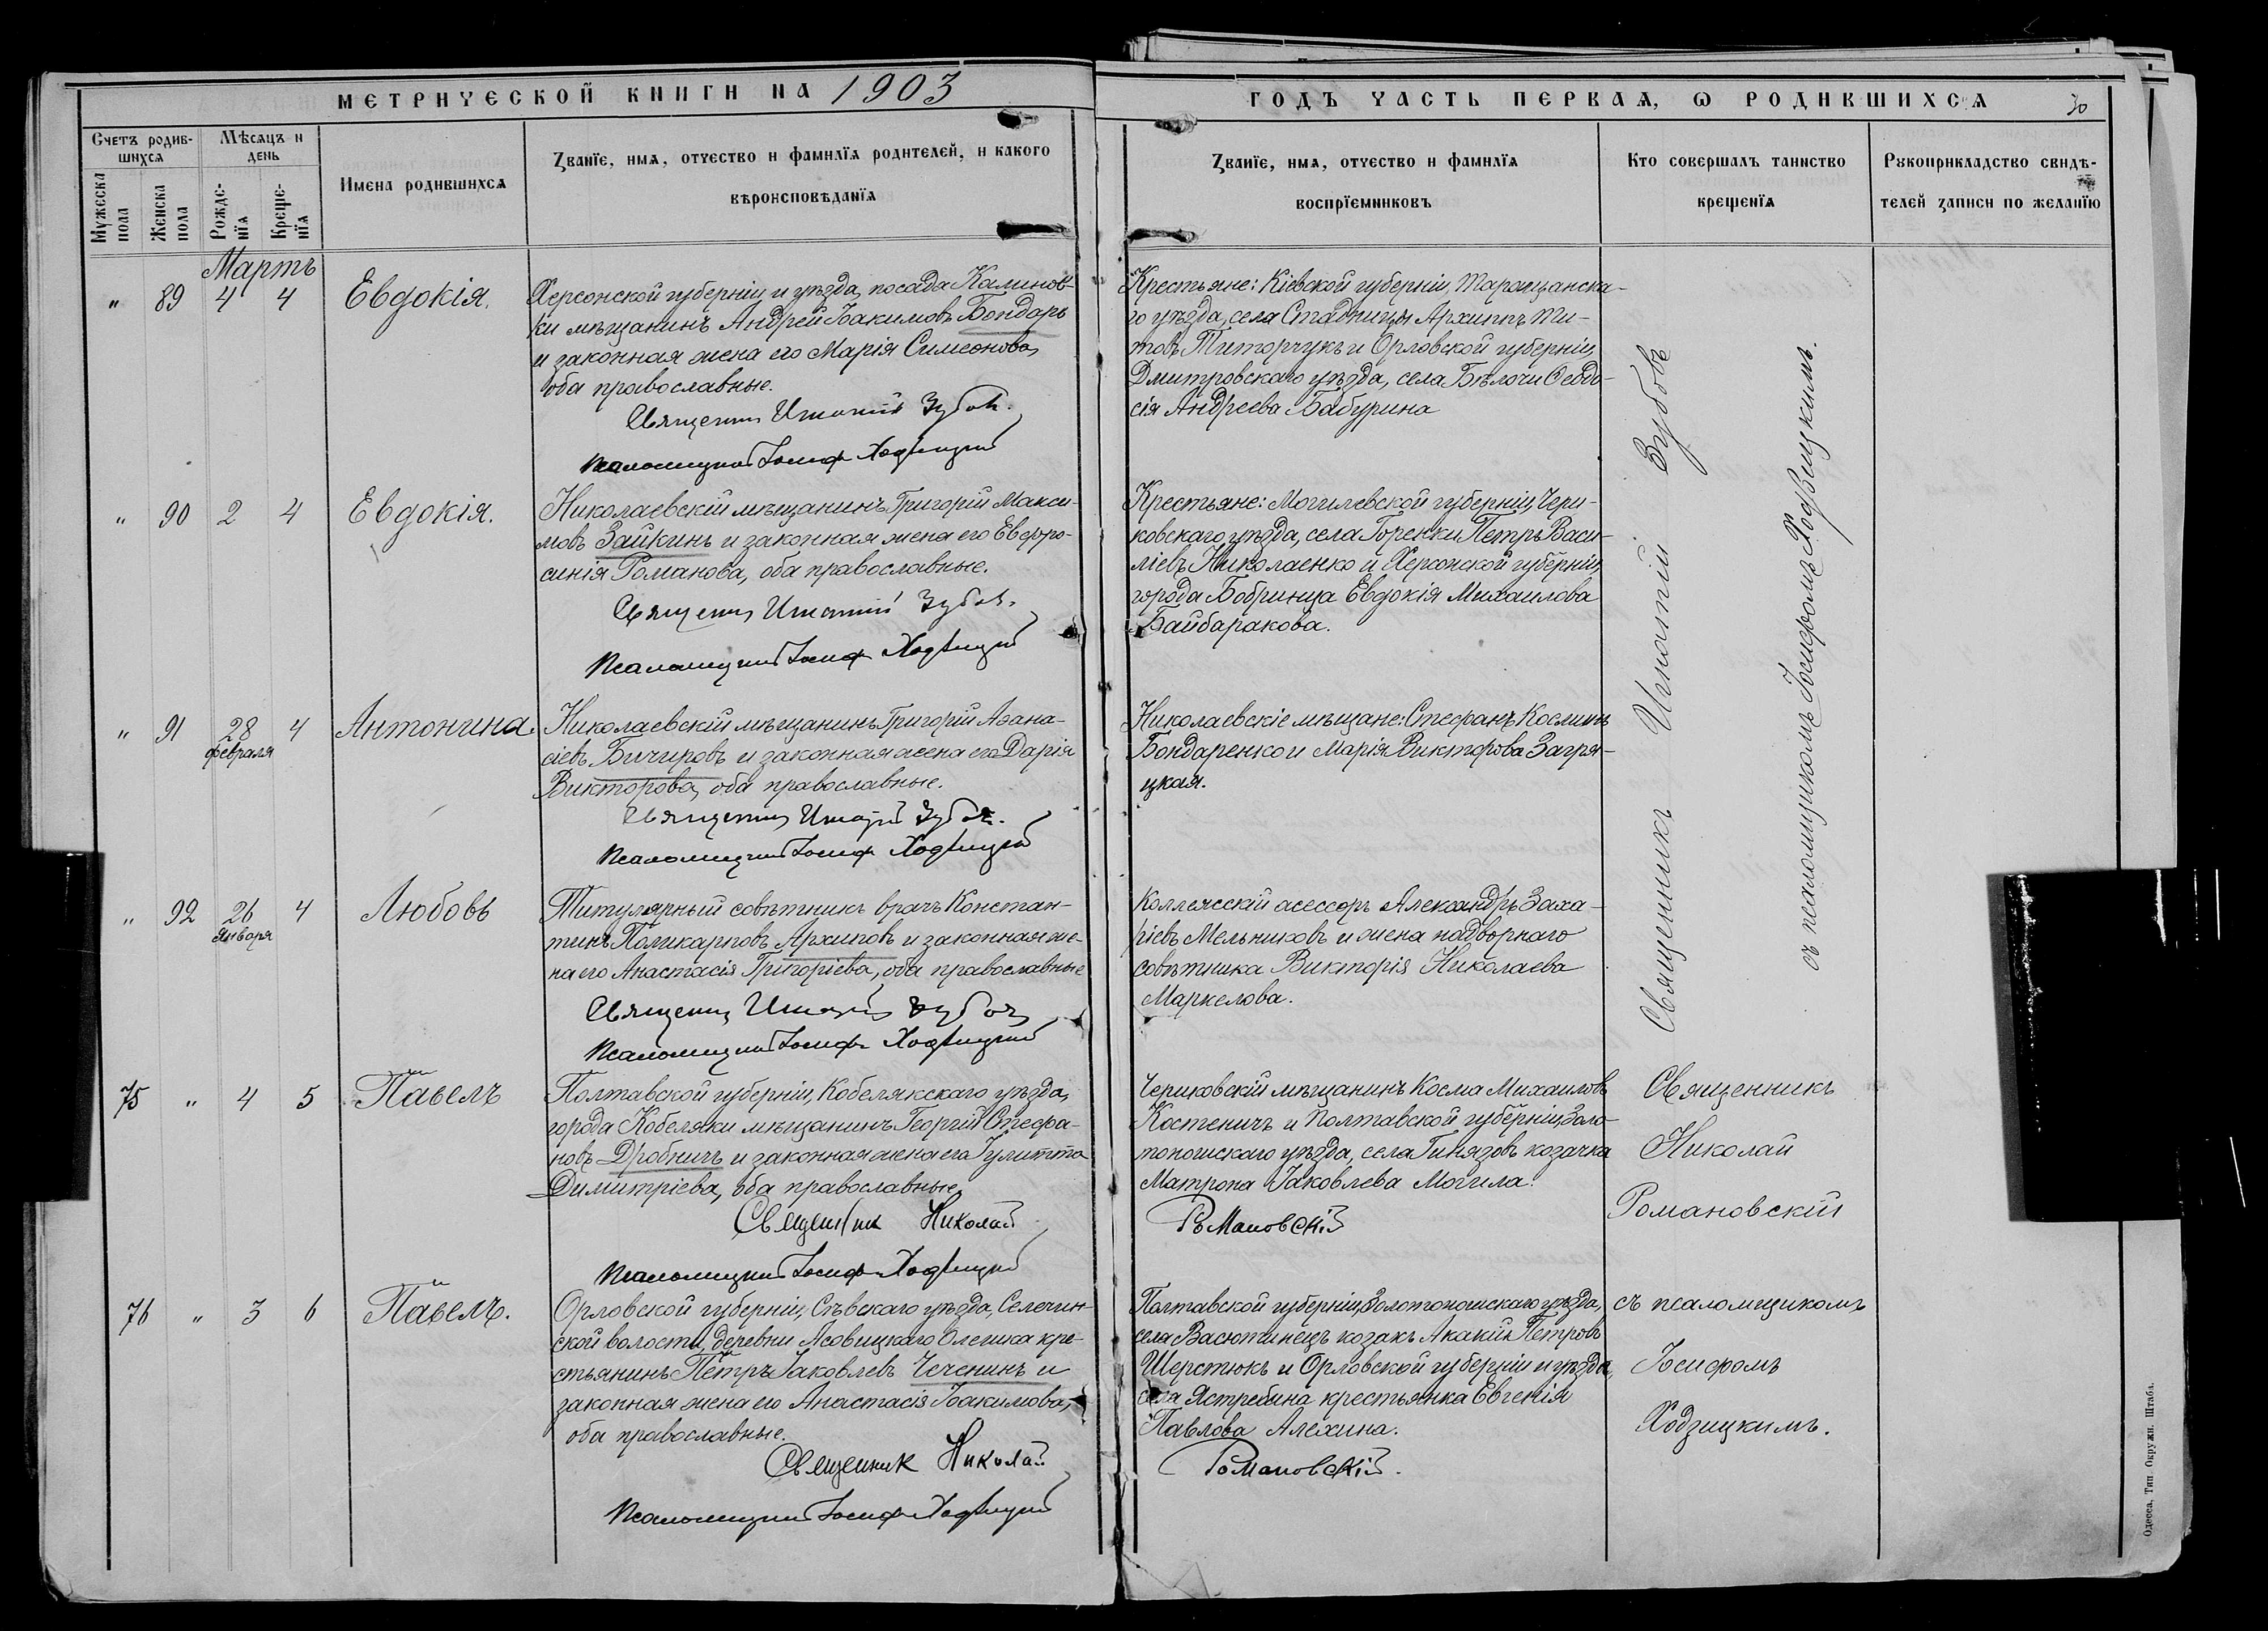 МЕТРИЧЕСКОЙ КНИГИ НА 1903
ГОДЪ ЧАСТЬ ПЕРВАЯ, Ѡ РОДИВШИХСЯ
30
Счетъ родив-
шихся
Мѣсяцъ и
день
Мужеска
пола
Женска
пола
Рожде-
нїя
Креще-
нїя
Имена родившихся
Званїе, имя, отчество и фамилїя родителей, и какого
вѣроисповѣданїя
Званїе, имя, отчество и фамилїя
воспрїемниковъ
Кто совершалъ таинство
крещенїя
Рукоприкладство свидѣ-
телей записи по желанїю
Мартъ
" 89 4 4 Евдокія.
Херсонской губерніи и уѣзда, посада Калинов-
ки мѣщанинъ Андрей Іоакимовъ Бондарь
и законная жена его Марія Симеонова,
оба православные.
Священникъ Игнатій Зубовъ.
Псаломщикъ Іосифъ Ходзицкій
Крестьяне: Кіевской губерніи, Таращанска-
го уѣзда, села Ставницы Архиппъ Ти-
товъ Титорчукъ и Орловской губерніи,
Дмитровскаго уѣзда, села Бѣлочи Ѳеодо-
сія Андреева Бабурина
" 90 2 4 Евдокія.
Николаевскій мѣщанинъ Григорій Макси-
мовъ Зайкинъ и законная жена его Евфро-
синія Романова, оба православные.
Священникъ Игнатій Зубовъ.
Псаломщикъ Іосифъ Ходзицкій
Крестьяне: Могилевской губерніи, Чери-
ковскаго уѣзда, села Горенки Петръ Васи-
ліевъ Николаенко и Херсонской губерніи,
города Бобринца Евдокія Михаилова
Байбаракова.
" 91 28 4 Антонина.
февраля
Николаевскій мѣщанинъ Григорій Аѳана-
сіевъ Бичировъ и законная жена его Дарія
Викторова, оба православные.
Священникъ Игнатій Зубовъ.
Псаломщикъ Іосифъ Ходзицкій
Николаевскіе мѣщане: Стефанъ Косминъ
Бондаренко и Марія Викторова Загря-
цкая.
" 92 26 4 Любовь
января
Титулярный совѣтникъ врачъ Констан-
тинъ Поликарповъ Архиповъ и законная же-
на его Анастасія Григоріева, оба православные
Священникъ Игнатій Зубовъ
Псаломщикъ Іосифъ Ходзицкій
Коллежскій асессоръ Александръ Заха-
ріевъ Мельниковъ и жена надворнаго
совѣтника Викторія Николаева
Маркелова.
Священникъ Игнатій Зубовъ
съ псаломщикомъ Іосифомъ Ходзицкимъ.
75 " 4 5 Павелъ
Полтавской губерніи, Кобелякскаго уѣзда,
города Кобеляки мѣщанинъ Георгій Стефа-
новъ Дробничъ и законная жена его Іулитта
Димитріева, оба православные.
Священник Николай
Псаломщикъ Іосифъ Ходзицкій
Чериковскій мѣщанинъ Косма Михаиловъ
Костеничъ и Полтавской губерніи, Золо-
тоношскаго уѣзда, села Гинязовъ козачка
Матрона Іаковлева Могила.
Романовскій
76 " 3 6 Павелъ.
Орловской губерніи, Сѣвскаго уѣзда, Селечин-
ской волости, деревни Асовицкаго Олешка кре-
стьянинъ Петръ Іаковлевъ Чеченинъ и
законная жена его Анастасія Іоакимова,
оба православные.
Священник Николай
Псаломщикъ Іосифъ Ходзицкій
Полтавской губерніи, Золотоношскаго уѣзда,
села Васютинецъ козакъ Акакій Петровъ
Шерстюкъ и Орловской губерніи и уѣзда,
села Ястребина крестьянка Евгенія
Павлова Алехина.
Романовскій.
Священникъ
Николай
Романовскій
съ псаломщикомъ
Іосифомъ
Ходзицкимъ.
Одесса, Тип. Окружн. Штаба.